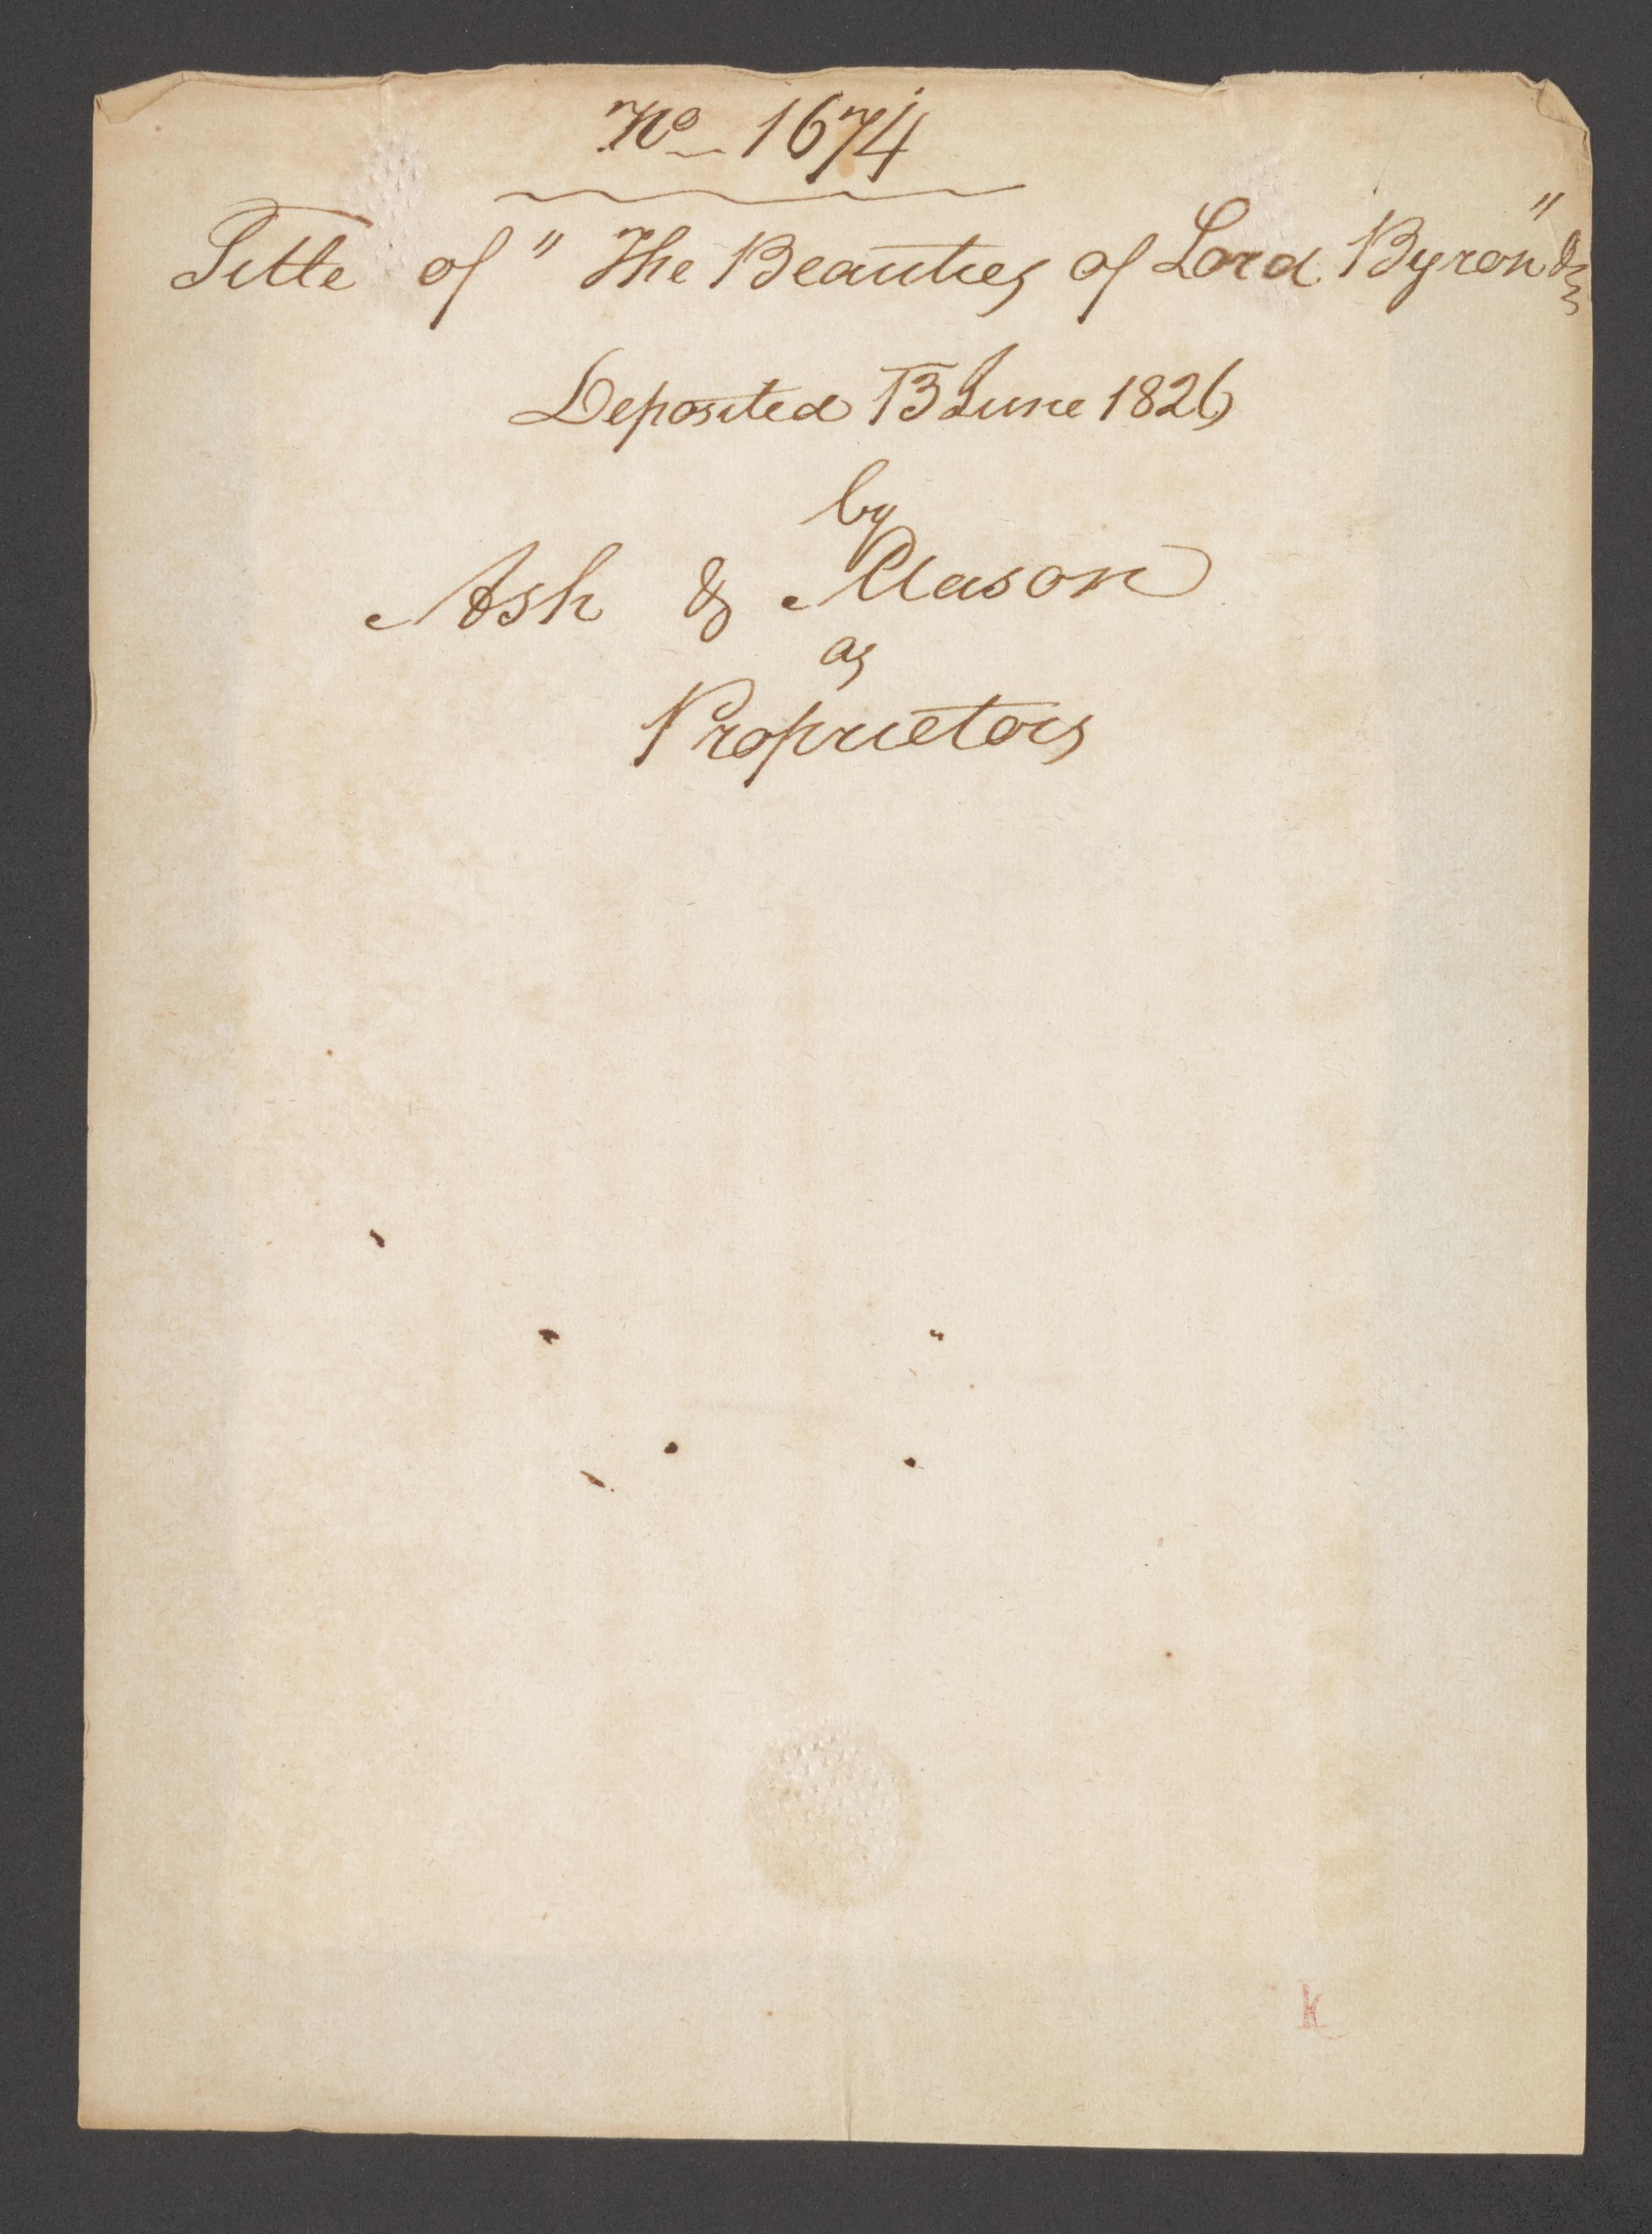 No 1674
Title of "The Beauties of Lord Byron" &c
Deposited 13 June 1826
by
Ash & Mason
as
Proprietors
k